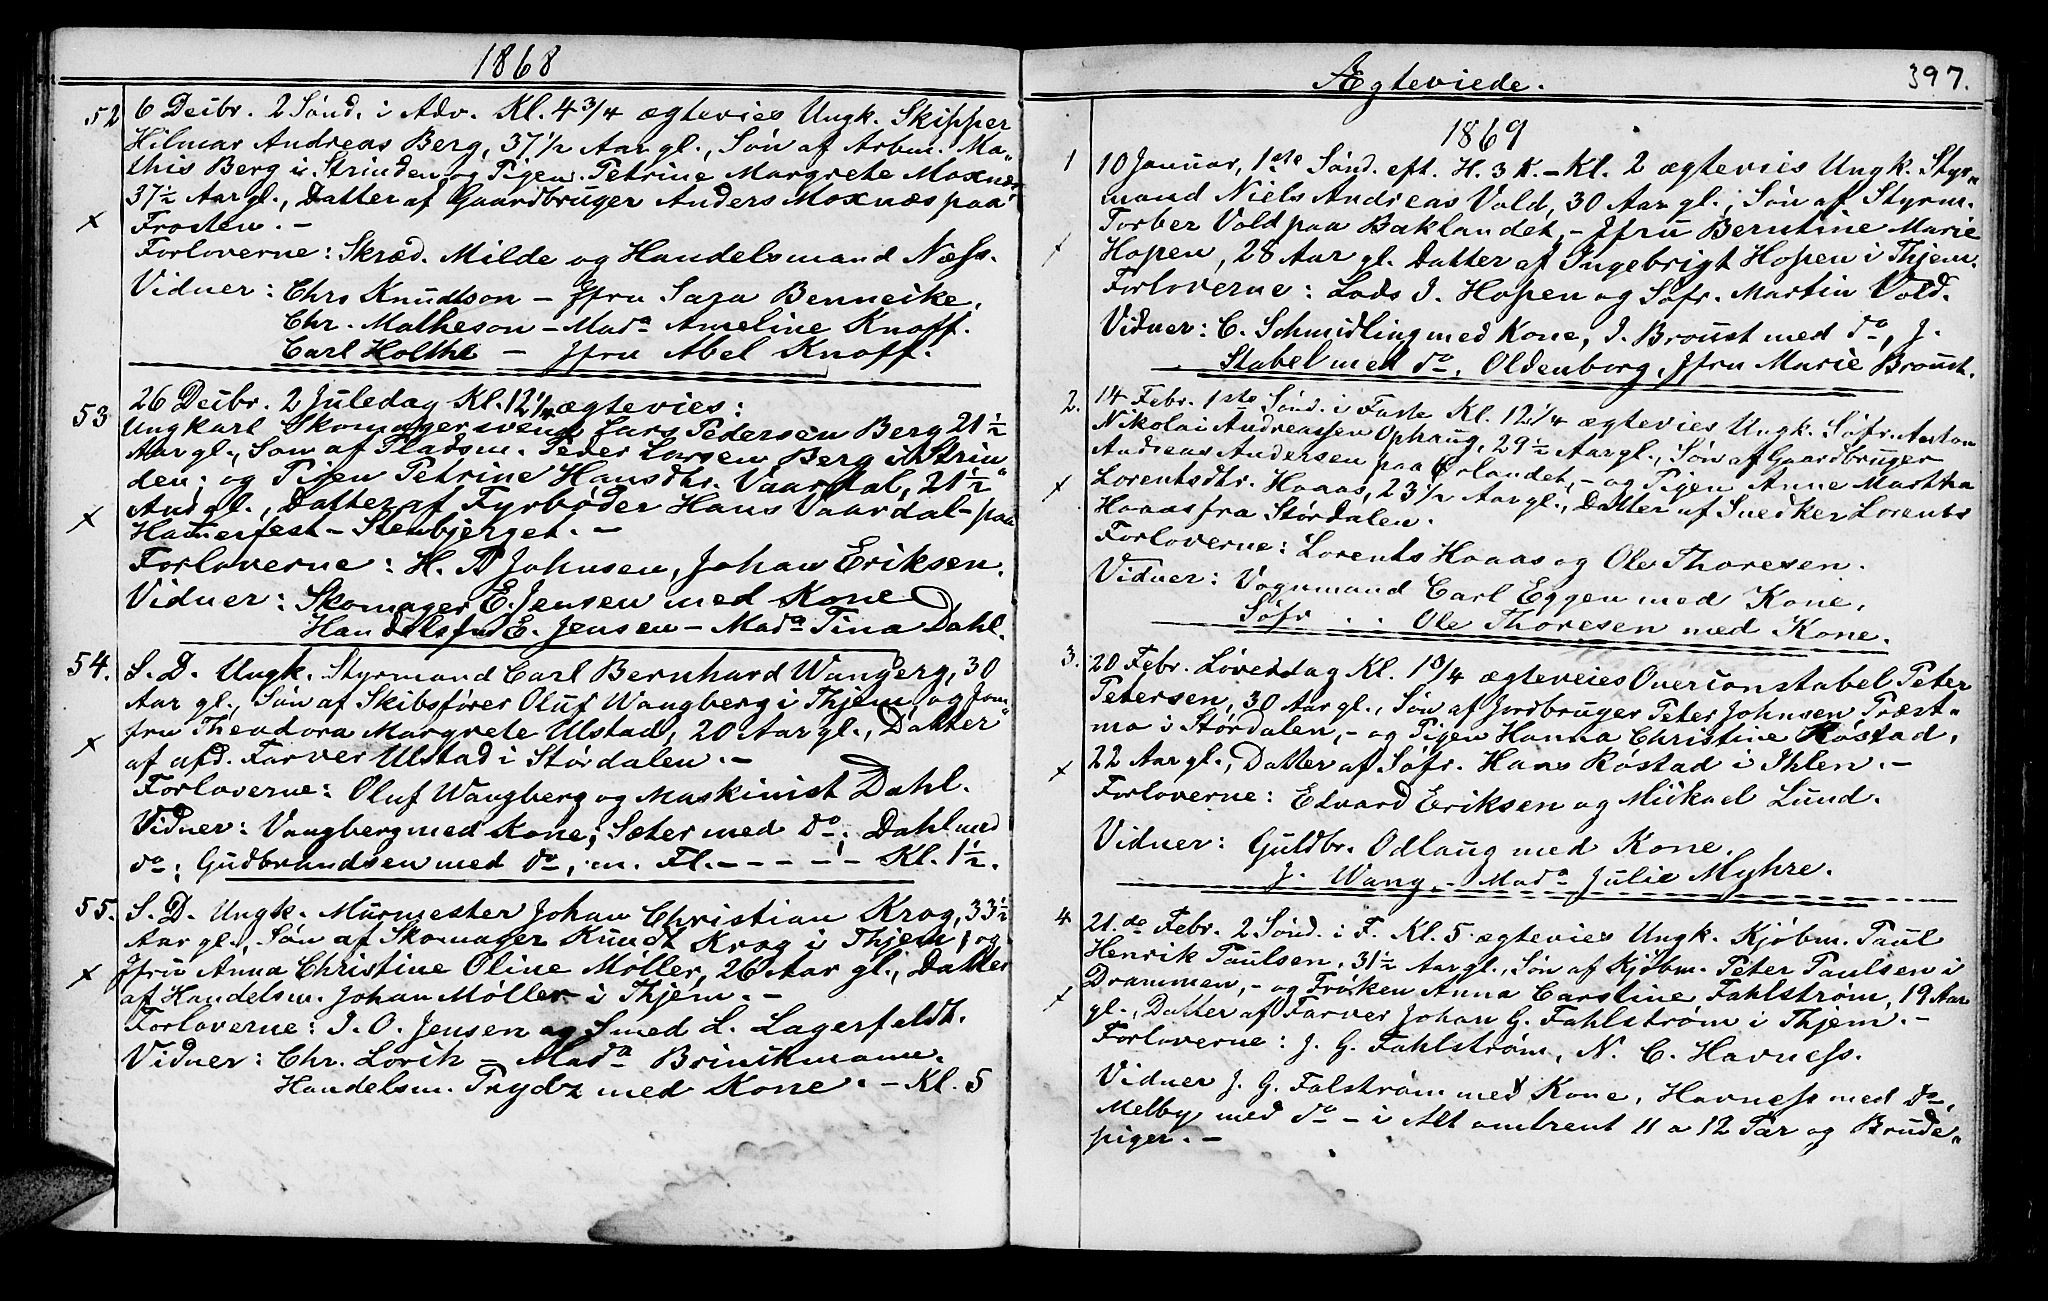 1868
52 6 Decbr. 2 Sønd. i Adv. Kl. 4 3/4 ægtevies Ungk. Skipper
Hilmar Andreas Berg, 37 1/2 Aar gl., Søn af Arbm. Ma„
this Berg i Strinden og Pigen Petrine Margrete Moxnæs
37 1/2 Aar gl., Datter af Gaardbruger Anders Moxnæs paa
x Frosten. –
Forloverne: Skræd. Milde og Handelsmand Næss.
Vidner: Chrs Knudtson – Jfru Sara Benneche,
Chr. Matheson – Mada Ameline Knoff.
Carl Holthe – Jfru Abel Knoff.
53 26 Decbr. 2 Juledag Kl. 12 1/4 ægtevies:
Ungkarl Skomagersvend Lars Pedersen Berg 21 1/2
Aar gl., Søn af Pladsm. Peder Larsen Berg i Strin„
den; og Pigen Petrine Hansdtr. Vaardal, 21 1/2
Aar gl., Datter af Fyrbøder Hans Vaardal – paa
x Hamerfest – Stenbjerget. –
Forloverne: H. P Johnsen, Johan Eriksen.
Vidner: Skomager E. Jensen med Kone
E. Jensen – Mada Tina Dahl.
54. S. D. Ungk. Styrmand Carl Bernhard Wangberg, 30
Aar gl., Søn af Skibsfører Oluf Wangberg i Thjem og Jom„
fru Theodora Margrete Ulstad, 20 Aar gl., Datter
x af afd. Farver Ulstad i Størdalen. –
Forloverne: Oluf Wangberg og Maskinist Dahl.
Vidner: Vangberg med Kone; Sæter med do; Dahl med
do; Gudbrandsen med do, m. Fl. – – – – – Kl. 1 1/2.
55. S. D. Ungk. Murmester Johan Christian Krog, 33 1/2
Aar gl., Søn af Skomager Knudt Krog i Thjem; og
x Jfru Anna Christine Oline Møller, 26 Aar gl., Datter
af Handelsm. Johan Møller i Thjem. –
Forloverne: J. O. Jensen og Smed L. Lagerfeldt.
Vidner: Chr. Lorck – Mada Brinckmann.
Handelsm. Trydz med Kone. – Kl. 5
Ægteviede. 397.
1869
1 10 Januar, 1ste Sønd. eft. H. 3 K. – Kl. 2 ægtevies Ungk. Styr„
mand Niels Andreas Vold, 30 Aar gl., Søn af Styrm.
Torber Vold paa Baklandet, – Jfru Berntine Marie
x Hopen, 28 Aar gl. Datter af Ingebrigt Hopen i Thjem.
Forloverne: Lods I. Hopen og Søfr. Martin Vold.
Vidner: C. Schmidling med Kone, I. Broust med do, J.
Stabel med do, Oldenborg, Jfru Marie Broust.
2. 14 Febr. 1ste Sønd. i Faste Kl. 12 1/4 ægtevies Ungk. Søfr. Anton
Nikolai Andreassen Ophaug, 29 1/2 Aar gl., Søn af Gaardbruger
Andreas Andersen paa Ørlandet, – og Pigen Anne Martha
x Lorentsdtr. Haaas, 23 1/2 Aar gl., Datter af Snedker Lorents
Haaas fra Størdalen.
Forloverne: Lorents Haaas og Ole Thoresen.
Vidner: Vognmand Carl Eggen med Kone,
Søfr . . Ole Thoresen med Kone.
3. 20 Febr. Løverdag Kl. ægteveies Overconstabel Peter
Petersen, 30 Aar gl., Søn af Jordbruger Peter Johnsen Præst„
mo i Størdalen, – og Pigen Hanna Christine Røstad,
x 22 Aar gl., Datter af Søfr. Hans Røstad i Ihlen. –
Forloverne: Edvard Eriksen og Mickael Lund.
Vidner: Guldbr. Odlaug med Kone.
J. Wang, – Mada Julie Myhre.
4 21.de Febr. 2 Sønd. i F. Kl. 5 ægtevies Ungk. Kjøbm. Paul
Henrik Paulsen, 31 1/2 Aar gl., Søn af Kjøbm. Peter Paulsen i
Drammen, – og Frøken Anna Carstine Fahlstrøm, 19 Aar
x gl., Datter af Farver Johan G. Fahlstrøm i Thjem. –
Forloverne: J. G. Fahlstrøm, N. C. Havness.
Vidner J. G. Falstrøm med Kone, Havness med do,
Melby med do – i Alt omtrent 11 a 12 Par og Brude„
piger. –